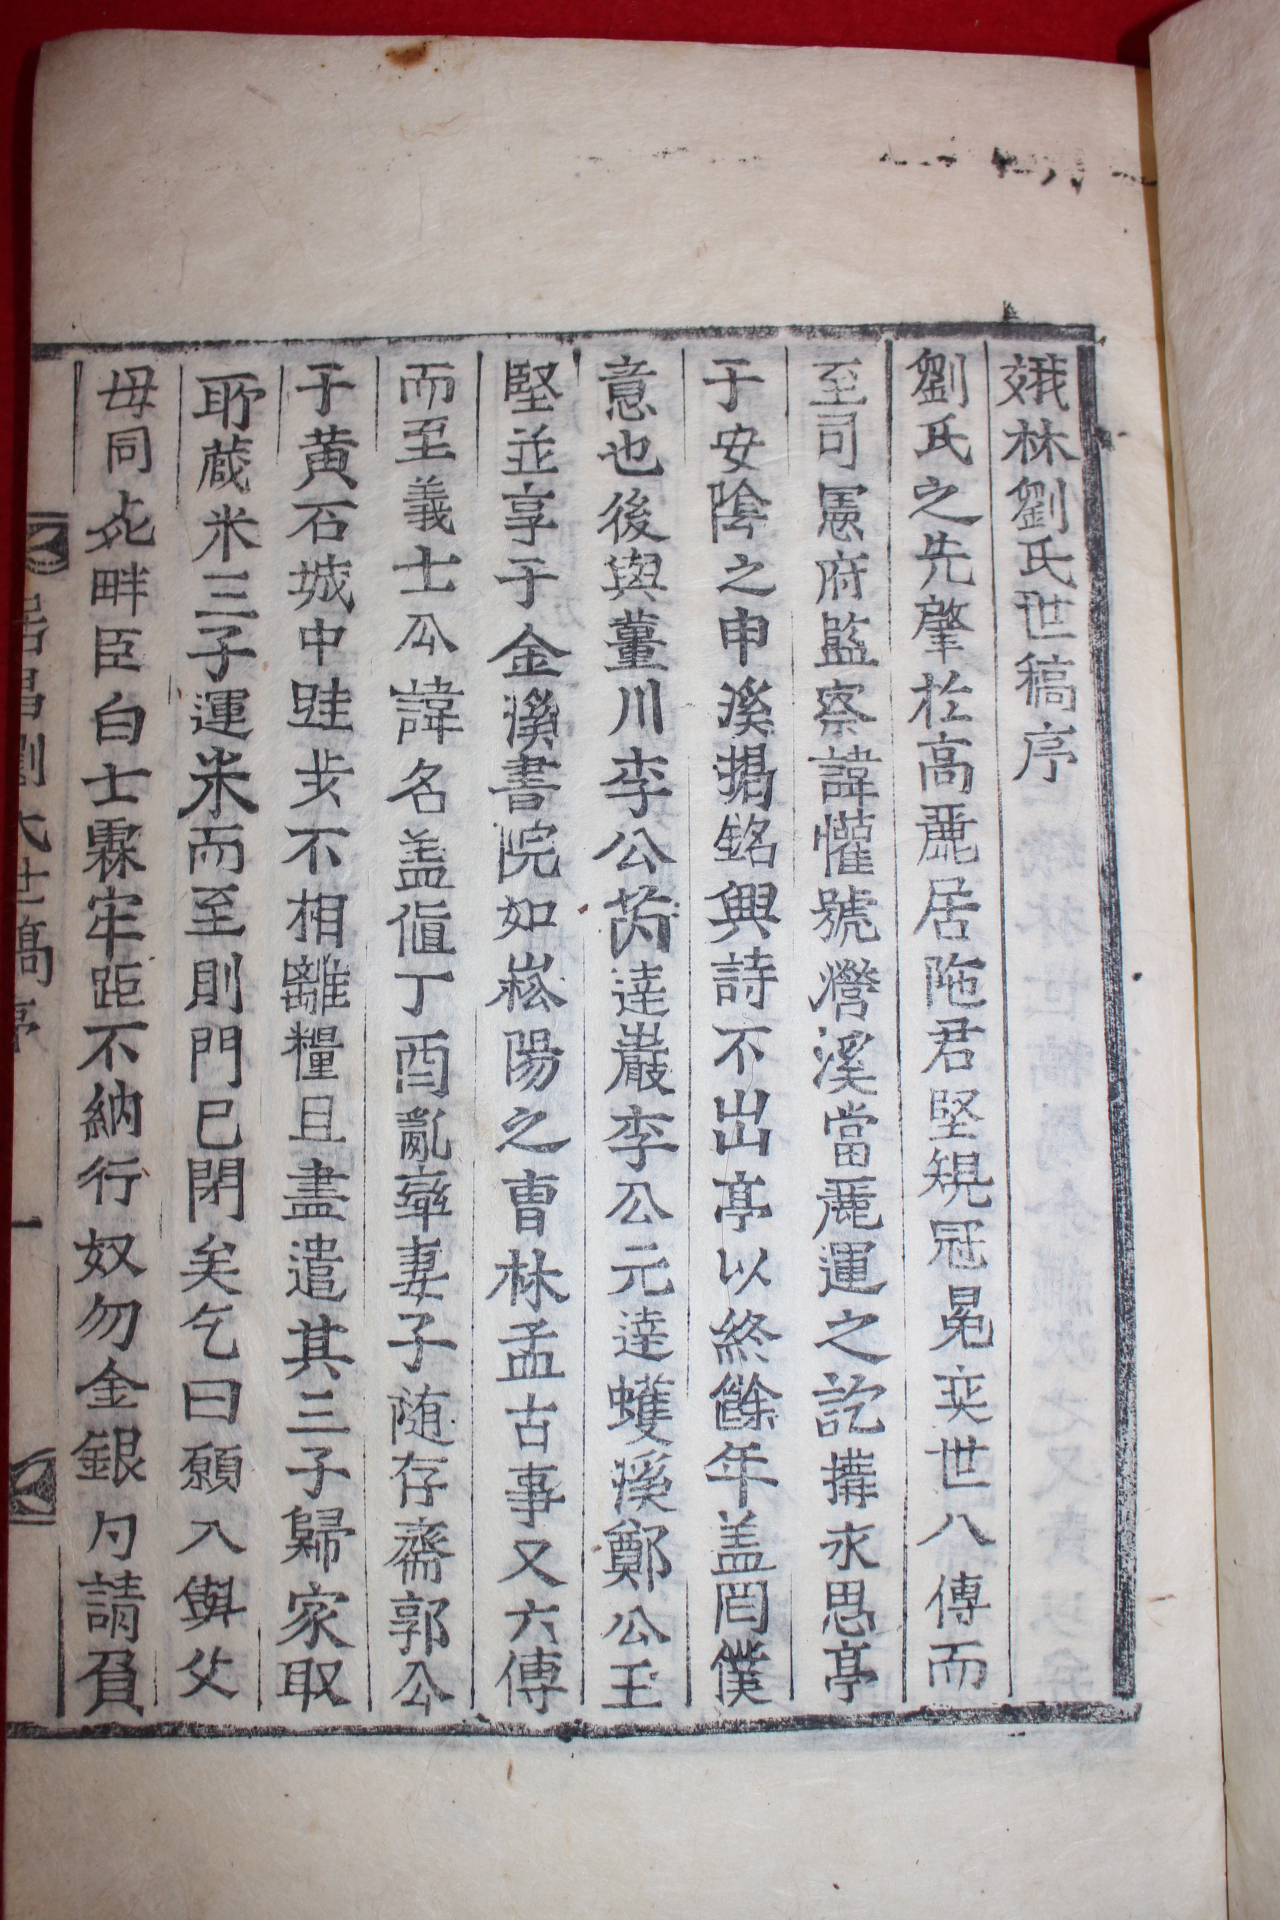 娥林劉氏世稿序
劉氏之先肇於高麗居陁君堅規冠冕奕世八傳而
至司憲府監察諱懽號瀯溪當麗運之訖搆永思亭
于安陰之申溪揭銘與詩不出亭以終餘年盖罔僕
意也後與藍川李公芮達巖李公元達蠖溪鄭公玉
堅並享于金溪書院如崧陽之曺林孟古事又六傳
而至義士公諱名盖值丁酉亂率妻子随存齋郭公
于黄石城中跬步不相離糧且盡遣其三子歸家取
所蔵米三子運米而至則門已閉矣乞曰願入與父
毋同死畔臣白士霖牢距不納行奴勿金銀勻請負
居昌劉氏世稿序
一